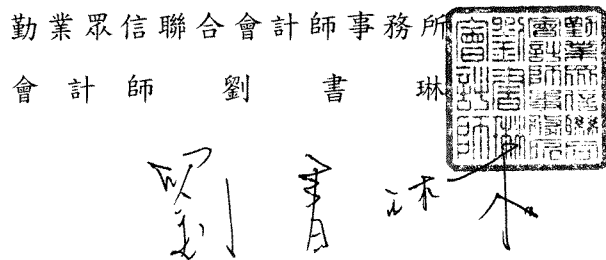 勤業眾信聯合會計師事務所
會計師 劉書琳
劉書琳
勤業眾信聯合會計師事務所劉書琳會計師